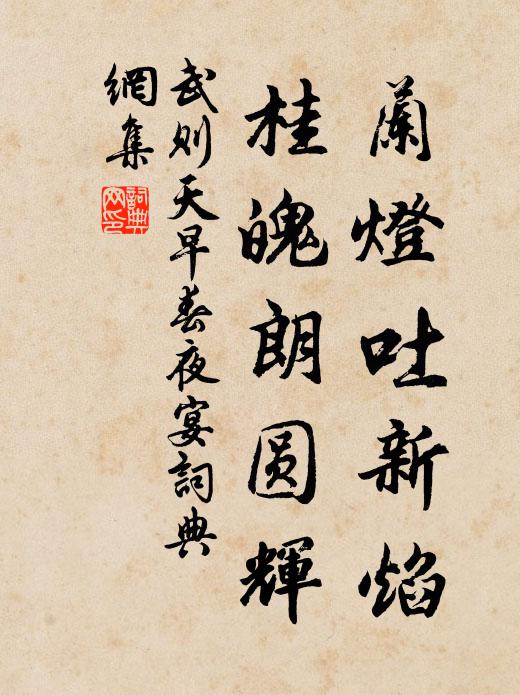 蘭燈吐新焰
桂魄朗圆輝
武则天早春夜宴詞典
網集
詞典
网印